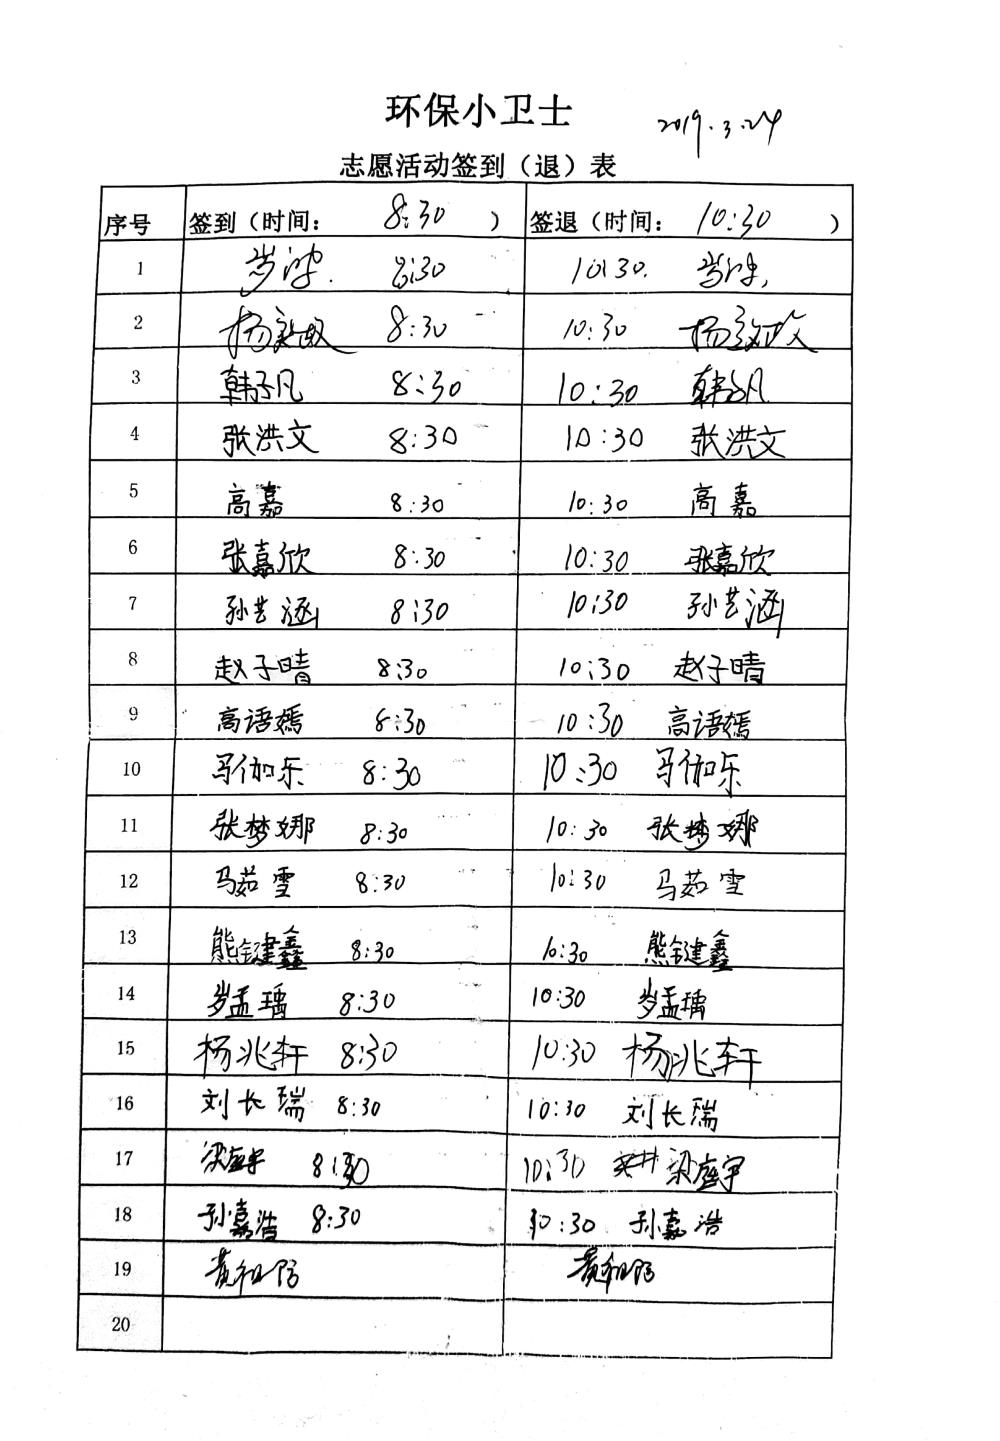 环保小卫士
2019.3.24
志愿活动签到（退）表
序号 签到（时间： 8:30 ） 签退（时间： 10:30 ）
1 8:30 10:30.
2 杨 8:30 10:30 杨
3 韩子凡 8:30 10:30 韩子凡
4 张洪文 8:30 10:30 张洪文
5 高嘉 8:30 10:30 高嘉
6 张嘉欣 8:30 10:30 张嘉欣
7 孙艺涵 8:30 10:30 孙艺涵
8 赵子晴 8:30 10:30 赵子晴
9 高语嫣 8:30 10:30 高语嫣
10 马伽乐 8:30 10:30 马伽乐
11 张梦娜 8:30 10:30 张梦娜
12 马茹雪 8:30 10:30 马茹雪
13 熊键鑫 8:30 10:30 熊键鑫
14 岁孟瑀 8:30 10:30 岁孟瑀
15 杨兆轩 8:30 10:30 杨兆轩
16 刘长瑞 8:30 10:30 刘长瑞
17 梁庭宇 8:30 10:30 梁庭宇
18 孙嘉浩 8:30 10:30 孙嘉浩
19 黄 黄
20